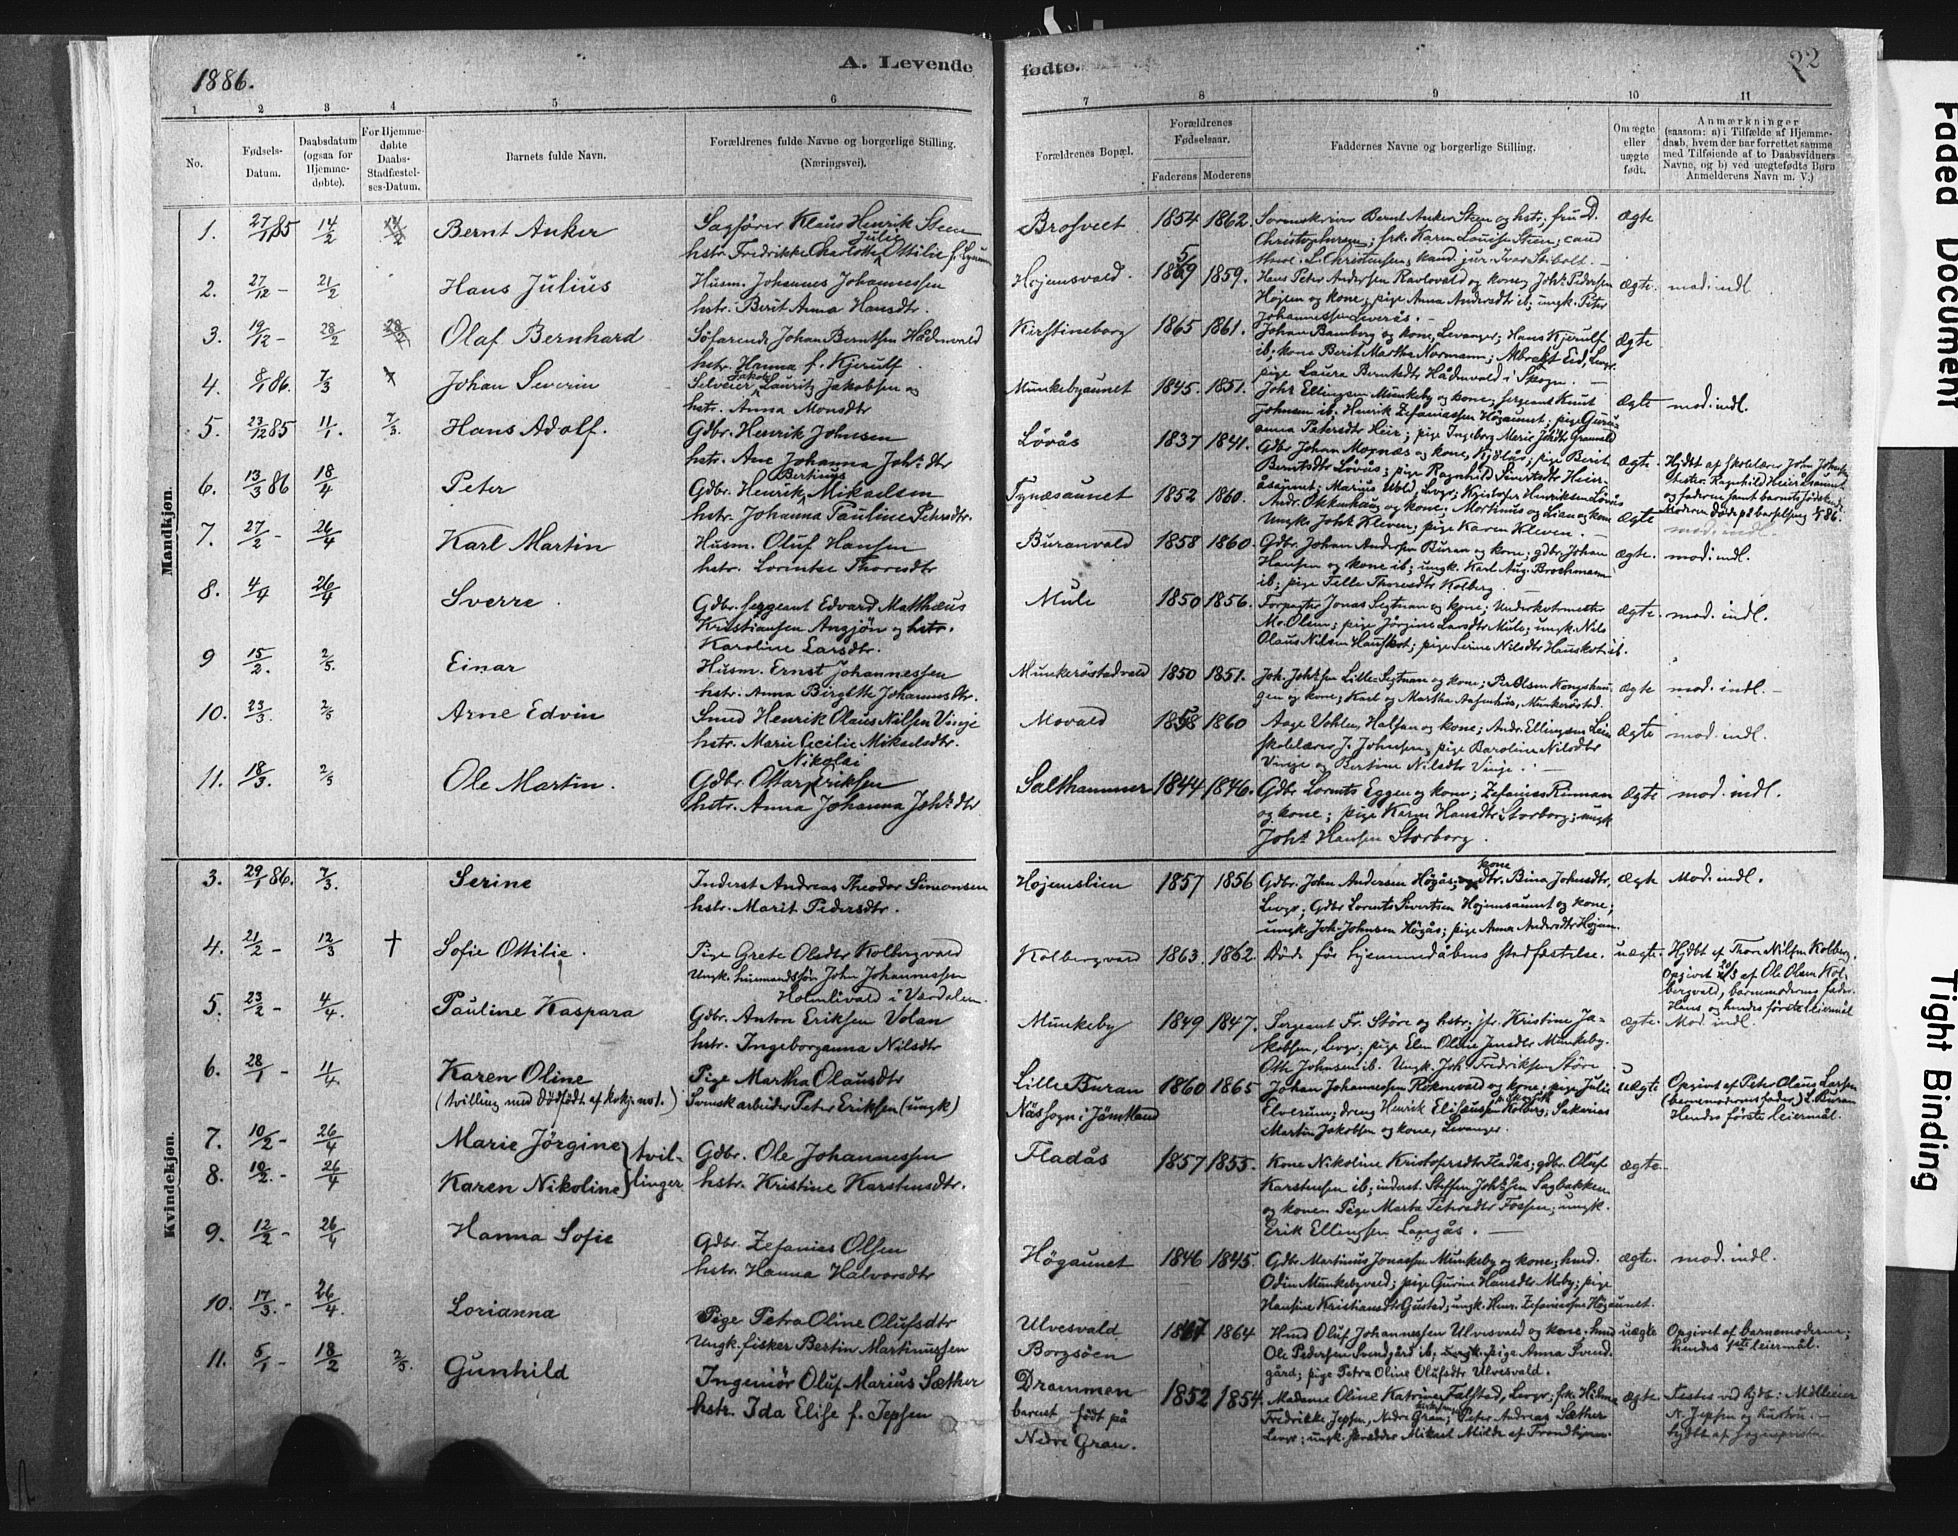 1886.
A. Levende
fødte.
22
1 2 3 4 5 6 7 8 9 10 11
No.
Fødsels-Datum.
Daabsdatum (ogsaa for Hjemmedøbte).
For Hjemmedøbte Daabs-Stadfæstelses-Datum.
Barnets fulde Navn.
Forældrenes fulde Navne og borgerlige Stilling. (Næringsvei).
Forældrenes Bopæl.
Forældrenes Fødselsaar.
Faderens Moderens
Faddernes Navne og borgerlige Stilling.
Om ægte eller uægte født.
Anmærkninger (saasom: a) i Tilfælde af Hjemmedaab, hvem der har forrettet samme med Tilføiende af to Daabsvidners Navne, og b) ved uægtefødte Børn Anmelderens Navn m. V.)
Mandkjøn.
1. 27/1 85 14/2 Bernt Anker
Sagfører Klaus Henrik Steen
hstr. Fredrikke Charlotte Julie Ottilie f.
Brosveet 1854 1862.
Sorenskriver Bernt Anker Steen og hstr; fru D.
Christophersen; frk. Karen Louise Steen; cand
L. Christensen; kand. jur. Ivar Stibolt. —
ægte
2. 27/12 - 21/2 Hans Julius
Husm. Johannes Johannessen
hstr. Berit Anna Hansdtr.
Højemsvald. 1859 1859.
Hans Peter Andersen Ravlovald og kone; Johs Pedersen
Højem og kone; pige Anna Andersdt ib; ungk. Peter
Johannessen
ægte. mod. indl
3. 19/12 - 28/2 28/2 Olaf Bernhard
Søfarende Johan Berntsen Hådnvald
hstr. Hanna f. Kjerulf
Kirstineborg 1865 1861.
Johan Bamberg og kone, Levanger; Hans Kjerulf
ib; kone Berit Martha Normann; Albrekt Eid, Levgr.
pige Laura Berntsdtr Hådnvald i Skogn. —
ægte
4. 8/1 86. 7/3 Johan Severin
Selveier Jakob Lauritz Jakobsen og
hstr. Anna Monsdtr
Munkebyaunet 1845. 1851.
Johs Ellingsen Munkeby og kone; sergeant Knut
Johnsen ib. Henrik Zefaniassen Högaunet; pige Guru-
anna Petersdtr Heir; pige Ingeborg Marie Johsdtr
ægte mod. indl.
5. 23/12 85 11/1. 7/3. Hans Adolf.
Gdbr. Henrik Johnsen
hstr. Ane Johanna Johsdtr
Lövås 1837 1841.
Gdbr Johan Mopnæs og kone, Kjölås; pige Berit
Berntsdtr Lövås; pige Ragnhild Sivertsdtr Heir-
åsaunet; Marius Vold, Levgr; Kristofer Henriksen Lövås
ægte. Hjdbt af skolelærer John Johnsen
tester. Ragnhild Heiråsaunet
og faderen samt barnets födsel.
Moderen döde på barselseng 86.
6. 13/3 86 18/4 Peter
Gdbr. Henrik Bertinus Mikaelsen
hstr. Johanna Pauline Petersdtr.
Tynæsaunet 1852 1860.
Andr. Okkenhaug og kone; Martinus Lian og kone
Ungk. Johs Kleven; pige Karen Kleven. —
ægte mod. indl.
7. 27/2 - 26/4 Karl Martin
Husm. Oluf Hansen
hstr. Lorentse Thoresdtr
Buranvald 1858 1860.
Gdbr. Johan Andersen Buran og kone; gdbr. Johan
Hansen og kone ib; ungk. Karl Aug. Brochmann
ib; pige Tille Thoresdtr Kolberg.
ægte. mod. indl.
8. 4/4 26/4 Sverre.
Gdbr. sergeant Edvard Matthæus
Kristiansen Ansjön og hstr.
Karoline Larsdtr.
Mule 1850 1856.
Forpagter Jonas Segtnan og kone; Underkvtmester
M. Olsen; pige Jörgine Larsdtr Mule; ungk. Nils
Olaus Nilsen Hauskot; pige Serine Nilsdtr Hauskot ib.
ægte. mod. indl.
9 15/2. 2/5 Einar
Husm. Ernst Johannessen
hstr. Anna Birgitte Johannesdtr.
Munkeröstadvald 1850 1851.
Joh. Johsen Lille-Segtnan og kone; Per Olsen Kongshau-
gen og kone; Karl og Martha Aasenhus, Munkeröstad.
ægte mod. indl. —
10. 23/3. 2/5 Arne Edvin
Smed Henrik Olaus Nilsen Vinge
hstr. Marie Cecilie Mikaelsdtr.
Movald 1858 1860
Aage Vohlen, Halsan og kone; Andr. Ellingsen Lein
skolelærer J. Johnsen; pige Baroline Nilsdtr
Vinge og Bertine Nilsdtr Vinge. —
ægte mod. indl.
11. 18/3. 2/5 Ole Martin.
Gdbr. Ottar Nikolai Eriksen
hstr. Anna Johanna Johsdtr
Salthammer 1844 1846.
Gdbr Lorents Eggen og kone; Zefanias Rinnan
og kone; pige Karen Hansdtr Storborg; ungk
Johs Hansen Storborg.
ægte. mod. indl.
Kvindekjøn.
3. 29/1 86. 7/3. Serine
Inderst Andreas Theodor Simonsen
hstr. Marit Pedersdtr.
Højemslien 1857 1856
Gdbr. John Andersen Högås, kone dtr. Bina Johnsdtr,
Levgr; Gdbr Lorents Sivertsen Højemsaunet og kone;
ungk. Joh. Johnsen Högås; pige Anna Andersdtr Højem.
ægte Mod. indl.
4. 21/2 - 12/3 † Sofie Ottilie.
Pige Grete Olsdtr Kolbergvald
Ungk. husmandssön John Johannessen
Holmlivald i Værdalen.
Kolbergvald 1863. 1862.
Döde för hjemmedåbens stadfæstelse.
uægte. Hjdbt af Thore Nilsen Kolberg.
Opgivet 20/3 af Ole Olsen Kol-
bergvald, barnemoderens fader.
Hans og hendes förste leiermål
5. 23/2 - 4/4. Pauline Kaspara
Gdbr. Anton Eriksen Volan
hstr. Ingeborganna Nilsdtr
Munkeby 1849 1847.
Sergeant Fr. Störe og hstr; jfr. Kristine Ja-
kobsen, Levgr; pige Elen Oline Jensdtr Munkeby.
Otto Johnsen ib. Ungk. Joh Fredriksen Störe.
ægte. Mod. indl.
6. 28/1 - 11/4. Karen Oline
(tvilling med dödfödt af kvkj. no 1.)
Pige Martha Olausdtr
Svensk arbeider Peter Eriksen (ungk)
Lille Buran
Näs sogn i Jämtland 1860 1865
Johan Johannessen Röknevald og kone; pige Julie
Elverum; dreng Henrik Eliseussen Kolberg; Sakerias
Martin Jakobsen og kone, Levanger.
uægte Opgivet af Peter Olaus Larsen
(barnemoderens fader) L. Buran
Hendes förste leiermål.
7. 10/2 - 26/4 Marie Jörgine
8. 10/2. - 26/4 Karen Nikoline } tvil-
linger
Gdbr. Ole Johannessen
hstr. Kristine Karstensdtr.
Fladås 1857 1855.
Kone Nikoline Kristofersdtr Fladås; gdbr. Oluf
Karstensen ib; inderst Steffen Johsen Sagbakken
og konen Pige Marta Petersdtr Fossen; ungk.
Erik Ellingsen Langås. —
ægte
9. 12/2 - 26/4 Hanna Sofie
Gdbr. Zefanias Olsen
hstr. Hanna Halvorsdtr
Högaunet 1846 1845.
Gdbr Martinus Jonassen Munkeby og kone; hmd.
Odin Munkebyvald; pige Gurine Hansdtr Moby; pige
Hansine Kristiansdtr Gusted; ungk. Henr. Zefaniassen Högaunet.
ægte. mod. indl.
10. 17/3. - 26/4. Lorianna
Pige Petra Oline Olufsdtr
Ungk. fisker Bertin Martinussen
Ulvesvald
Borgsöen 1867 1864
Hmd Oluf Johannessen Ulvesvald og kone; hmd
Ole Pedersen Svendgård ib; pige Anna Svend-
gård; pige Petra Oline Olufsdtr Ulvesvald.
uægte Opgivet af barnemoderen;
hendes 1ste leiermål.
11. 5/1 - 18/2 2/5. Gunhild
Ingeniör Oluf Marius Sæther
hstr. Ida Elise f. Jepsen
Drammen
barnet födt på
Nedre Gran. 1852 1854.
Madame Oline Katrine Falstad, Levgr; frk. Hilma
Fredrikke Jepsen, Nedre Gran; Peter Andreas Sæther
Levgr; ungk. skrædder Mikael Milde af Trondhjem.
ægte Testes ved hjdb: Mölleier
N. Jepsen og hustru. —
hjdbt af sognepresten
Faded Document
Tight Binding